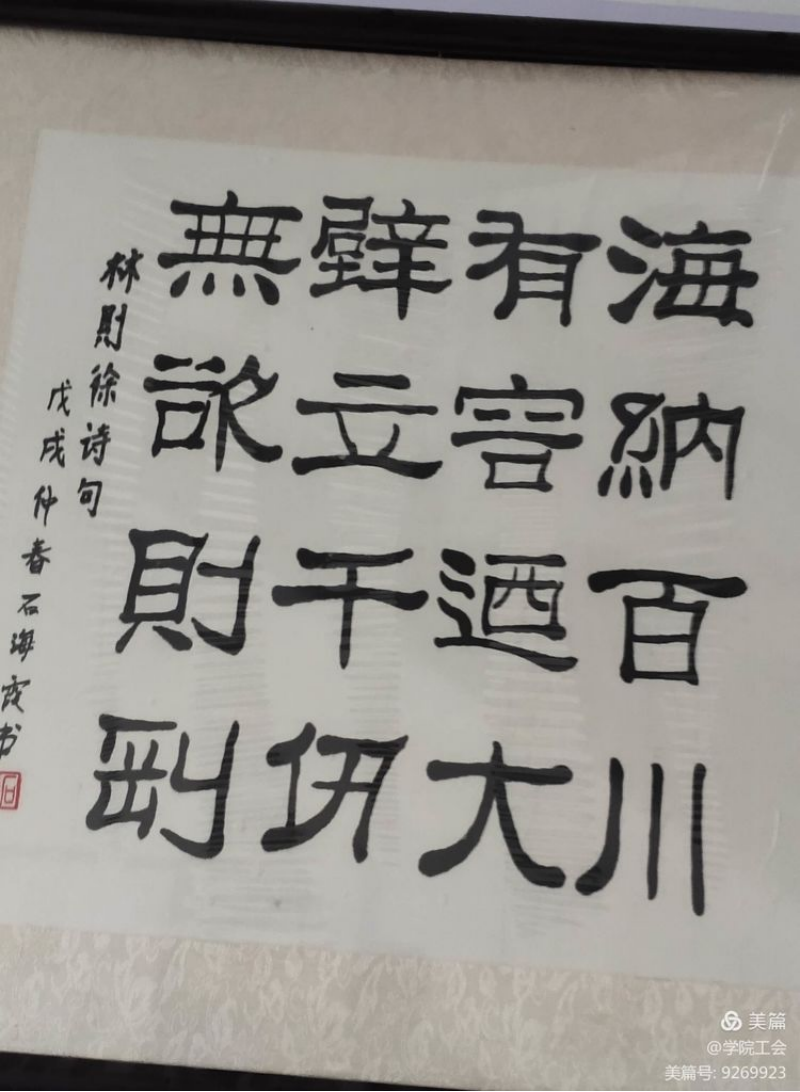 海納百川
有容迺大
壁立千仞
無欲則剛
林则徐诗句
戊戌仲春石海霞书
美篇
@学院工会
美篇号: 9269923